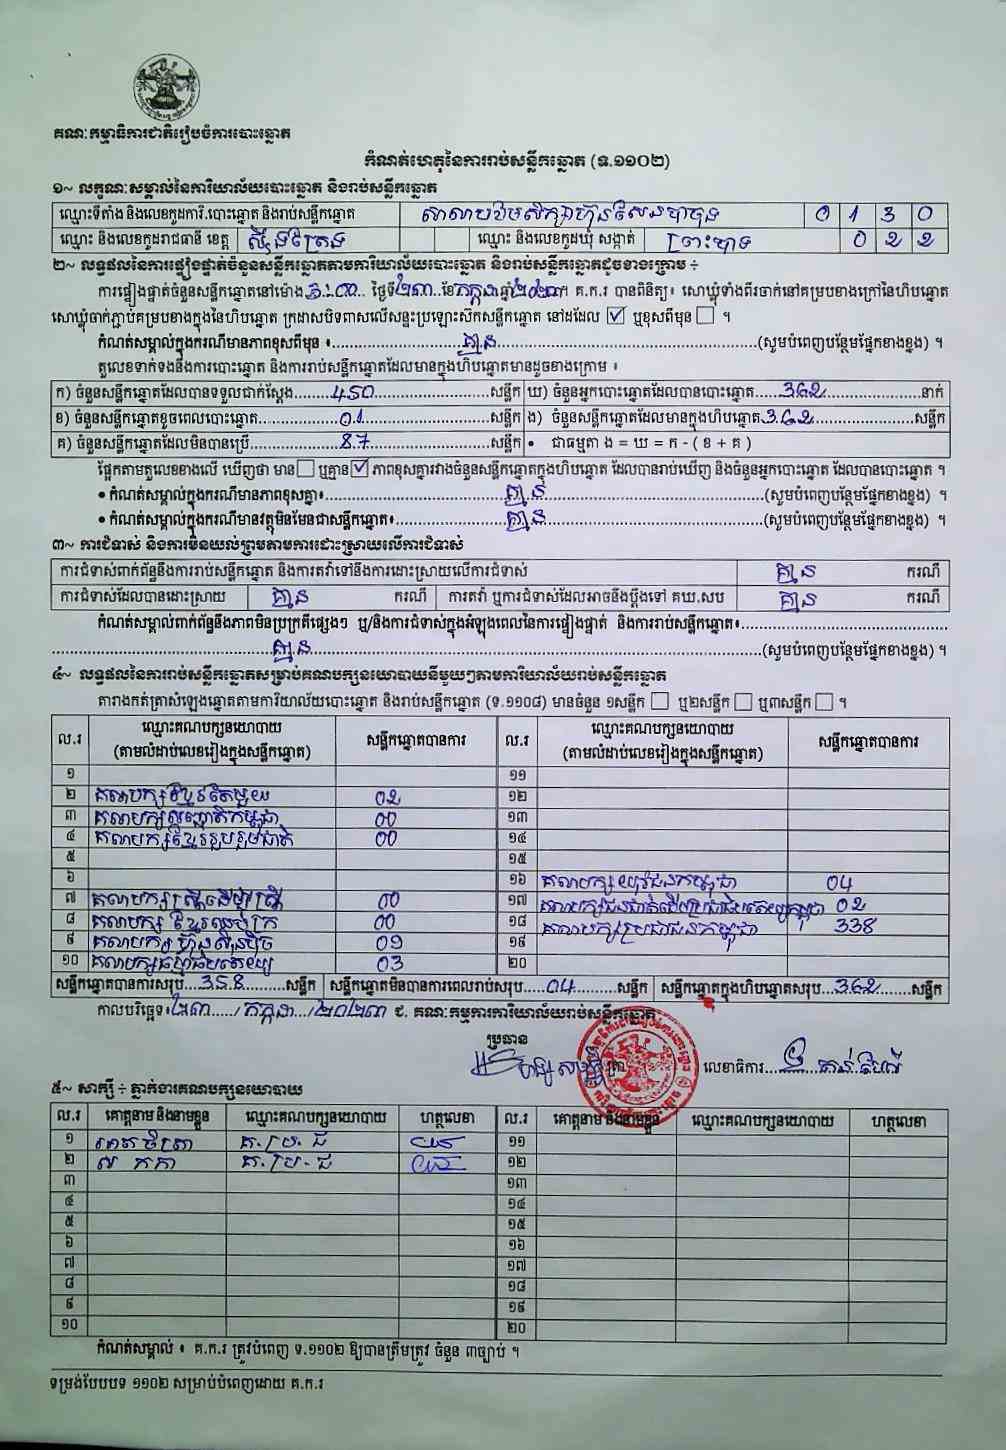 គណៈកម្មាធិការជាតិរៀបចំការបោះឆ្នោត
កំណត់ហេតុនៃការរាប់សន្លឹកឆ្នោត (ទ.១១០២)
១~ លក្ខណៈសម្គាល់នៃការិយាល័យបោះឆ្នោត និងរាប់សន្លឹកឆ្នោត
ឈ្មោះទីតាំង និងលេខកូដការិ.បោះឆ្នោត និងរាប់សន្លឹកឆ្នោត សាលាបឋមសិក្សាហ៊ុនសែនបាចុង 0 1 3 0
ឈ្មោះ និងលេខកូដរាជធានី ខេត្ត ស្ទឹងត្រែង ឈ្មោះ និងលេខកូដឃុំ សង្កាត់ ព្រះបាទ 0 2 2
២~ លទ្ធផលនៃការផ្ទៀងផ្ទាត់ចំនួនសន្លឹកឆ្នោតតាមការិយាល័យបោះឆ្នោត និងរាប់សន្លឹកឆ្នោតដូចខាងក្រោម ÷
ការផ្ទៀងផ្ទាត់ចំនួនសន្លឹកឆ្នោតនៅម៉ោង ៦:០០ ថ្ងៃទី២៣ ខែកក្កដា ឆ្នាំ២០២៣។ គ.ក.រ បានពិនិត្យ៖ សោឃ្លុំទាំងពីរចាក់នៅគម្របខាងក្រៅនៃហិបឆ្នោត
សោឃ្លុំចាក់ភ្ជាប់គម្របខាងក្នុងនៃហិបឆ្នោត ក្រដាសបិទពាសលើសន្ទះប្រឡោះស៊កសន្លឹកឆ្នោត នៅដដែល ☑ ឬខុសពីមុន ☐ ។
កំណត់សម្គាល់ក្នុងករណីមានភាពខុសពីមុន ៖ គ្មាន (សូមបំពេញបន្ថែមផ្នែកខាងខ្នង) ។
តួលេខទាក់ទងនឹងការបោះឆ្នោត និងការរាប់សន្លឹកឆ្នោតដែលមានក្នុងហិបឆ្នោតមានដូចខាងក្រោម ៖
ក) ចំនួនសន្លឹកឆ្នោតដែលបានទទួលជាក់ស្តែង 450 សន្លឹក ឃ) ចំនួនអ្នកបោះឆ្នោតដែលបានបោះឆ្នោត 362 នាក់
ខ) ចំនួនសន្លឹកឆ្នោតខូចពេលបោះឆ្នោត 01 សន្លឹក ង) ចំនួនសន្លឹកឆ្នោតដែលមានក្នុងហិបឆ្នោត 362 សន្លឹក
គ) ចំនួនសន្លឹកឆ្នោតដែលមិនបានប្រើ 87 សន្លឹក • ជាធម្មតា ង = ឃ = ក - ( ខ + គ )
ផ្អែកតាមតួលេខខាងលើ ឃើញថា មាន ☐ ឬគ្មាន ☑ ភាពខុសគ្នារវាងចំនួនសន្លឹកឆ្នោតក្នុងហិបឆ្នោត ដែលបានរាប់ឃើញ និងចំនួនអ្នកបោះឆ្នោត ដែលបានបោះឆ្នោត ។
• កំណត់សម្គាល់ក្នុងករណីមានភាពខុសគ្នា៖ គ្មាន (សូមបំពេញបន្ថែមផ្នែកខាងខ្នង) ។
• កំណត់សម្គាល់ក្នុងករណីមានវត្ថុមិនមែនជាសន្លឹកឆ្នោត៖ គ្មាន (សូមបំពេញបន្ថែមផ្នែកខាងខ្នង) ។
៣~ ការជំទាស់ និងការមិនយល់ព្រមតាមការដោះស្រាយលើការជំទាស់
ការជំទាស់ពាក់ព័ន្ធនឹងការរាប់សន្លឹកឆ្នោត និងការតវ៉ាទៅនឹងការដោះស្រាយលើការជំទាស់ គ្មាន ករណី
ការជំទាស់ដែលបានដោះស្រាយ គ្មាន ករណី ការតវ៉ា ឬការជំទាស់ដែលអាចនឹងប្តឹងទៅ គឃ.សប គ្មាន ករណី
កំណត់សម្គាល់ពាក់ព័ន្ធនឹងភាពមិនប្រក្រតីផ្សេងៗ ឬ/និងការជំទាស់ក្នុងអំឡុងពេលនៃការផ្ទៀងផ្ទាត់ និងការរាប់សន្លឹកឆ្នោត៖
គ្មាន (សូមបំពេញបន្ថែមផ្នែកខាងខ្នង) ។
៤~ លទ្ធផលនៃការរាប់សន្លឹកឆ្នោតសម្រាប់គណបក្សនយោបាយនីមួយៗតាមការិយាល័យរាប់សន្លឹកឆ្នោត
តារាងកត់ត្រាសំឡេងឆ្នោតតាមការិយាល័យបោះឆ្នោត និងរាប់សន្លឹកឆ្នោត (ទ.១១០៨) មានចំនួន ១សន្លឹក ☐ ឬ២សន្លឹក ☐ ឬ៣សន្លឹក ☐ ។
ល.រ ឈ្មោះគណបក្សនយោបាយ (តាមលំដាប់លេខរៀងក្នុងសន្លឹកឆ្នោត) សន្លឹកឆ្នោតបានការ ល.រ ឈ្មោះគណបក្សនយោបាយ (តាមលំដាប់លេខរៀងក្នុងសន្លឹកឆ្នោត) សន្លឹកឆ្នោតបានការ
១ ១១
២ គណបក្សខ្មែរតែមួយ 02 ១២
៣ គណបក្សសញ្ជាតិកម្ពុជា 00 ១៣
៤ គណបក្សខ្មែររួបរួមជាតិ 00 ១៤
៥ ១៥
៦ ១៦ គណបក្សយុវជនកម្ពុជា 04
៧ គណបក្សស្ត្រីដើម្បីស្ត្រី 00 ១៧ គណបក្សជនជាតិដើមប្រជាធិបតេយ្យកម្ពុជា 02
៨ គណបក្ស ខ្មែរឈប់ក្រ 00 ១៨ គណបក្សប្រជាជនកម្ពុជា 338
៩ គណបក្សហ៊្វុនស៊ិនប៉ិច 09 ១៩
១០ គណបក្សធម្មាធិបតេយ្យ 03 ២០
សន្លឹកឆ្នោតបានការសរុប 358 សន្លឹក សន្លឹកឆ្នោតមិនបានការពេលរាប់សរុប 04 សន្លឹក សន្លឹកឆ្នោតក្នុងហិបឆ្នោតសរុប 362 សន្លឹក
កាលបរិច្ឆេទ៖ ២៣ / កក្កដា / ២០២៣ ជ. គណៈកម្មការការិយាល័យរាប់សន្លឹកឆ្នោត
ប្រធាន
លេខាធិការ
៥~ សាក្សី ÷ ភ្នាក់ងារគណបក្សនយោបាយ
ល.រ គោត្តនាម និងនាមខ្លួន ឈ្មោះគណបក្សនយោបាយ ហត្ថលេខា ល.រ គោត្តនាម និងនាមខ្លួន ឈ្មោះគណបក្សនយោបាយ ហត្ថលេខា
១ គ.ប្រ.ជ ១១
២ គ.ប្រ.ជ ១២
៣ ១៣
៤ ១៤
៥ ១៥
៦ ១៦
៧ ១៧
៨ ១៨
៩ ១៩
១០ ២០
កំណត់សម្គាល់ ៖ គ.ក.រ ត្រូវបំពេញ ទ.១១០២ ឱ្យបានត្រឹមត្រូវ ចំនួន ៣ច្បាប់ ។
ទម្រង់បែបបទ ១១០២ សម្រាប់បំពេញដោយ គ.ក.រ